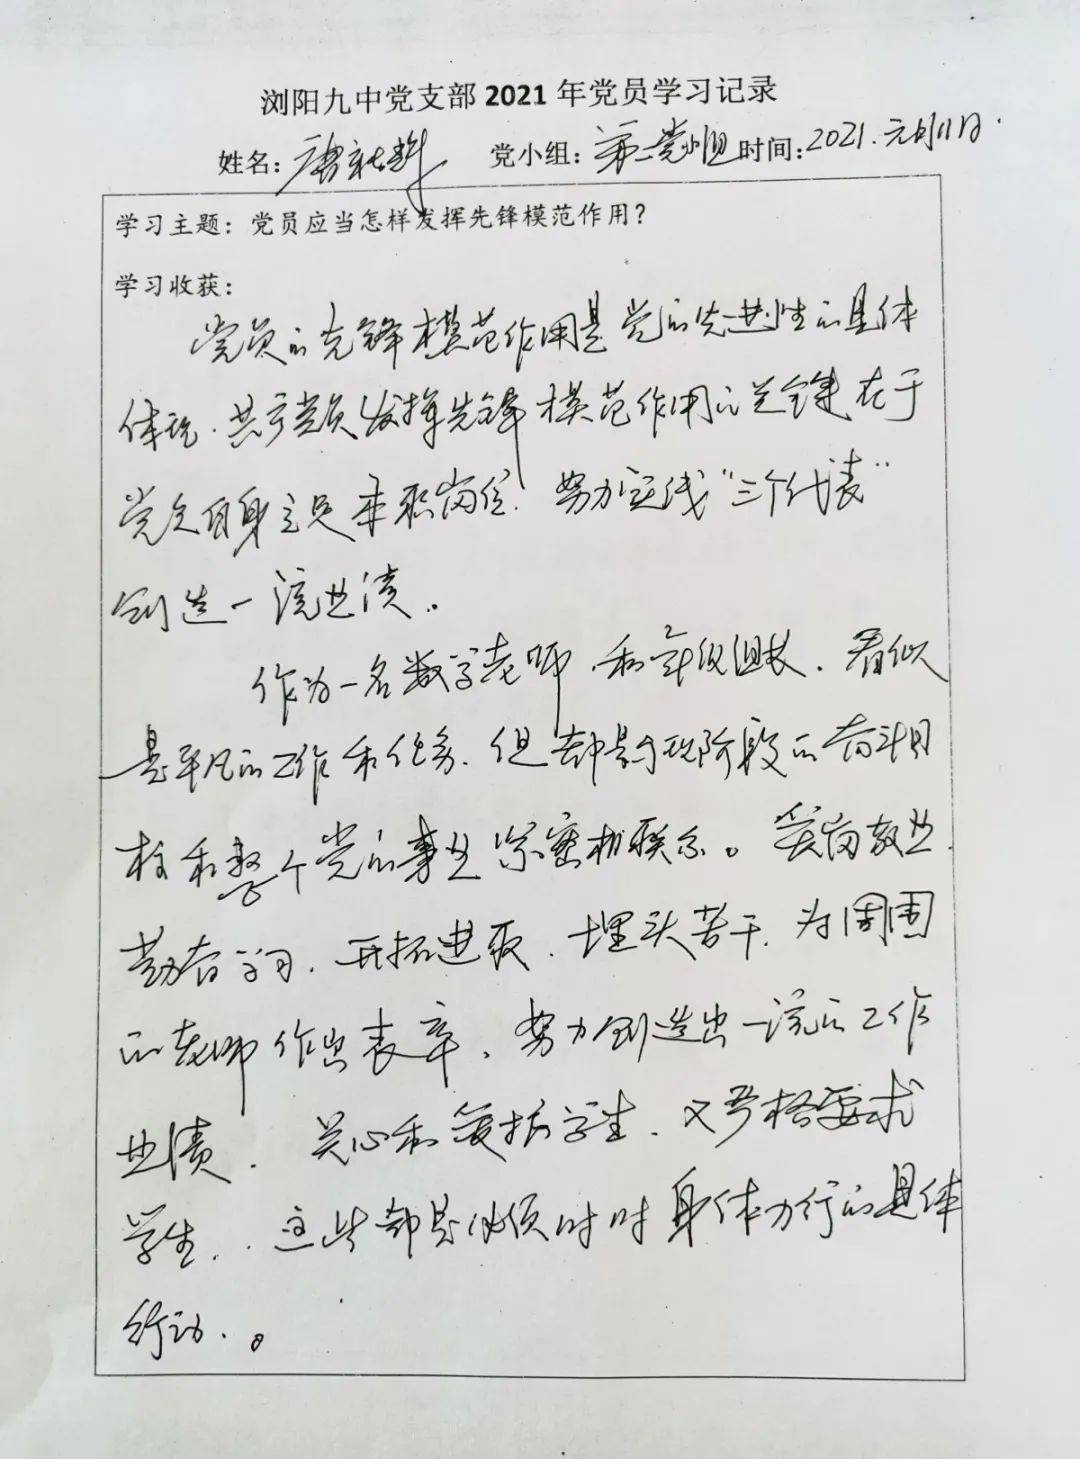 浏阳九中党支部 2021 年党员学习记录
姓名: 唐 党小组: 第一党小组 时间: 2021.元月11日.
学习主题：党员应当怎样发挥先锋模范作用？
学习收获：
党员的先锋模范作用是党的先进性的具体
体现.共产党员发挥先锋模范作用的关键在于
党员自身立足本职岗位.努力实践“三个代表”
创造一流业绩。
作为一名数学老师.和年级组长.看似
是平凡的工作和任务.但却是与现阶段的奋斗目
标和整个党的事业紧密相联系。爱岗敬业.
勤奋学习.开拓进取.埋头苦干.为周围
的老师作出表率.努力创造出一流的工作
业绩.关心和爱护学生.又严格要求
学生..这些都是必须时时身体力行的具体
行动.。